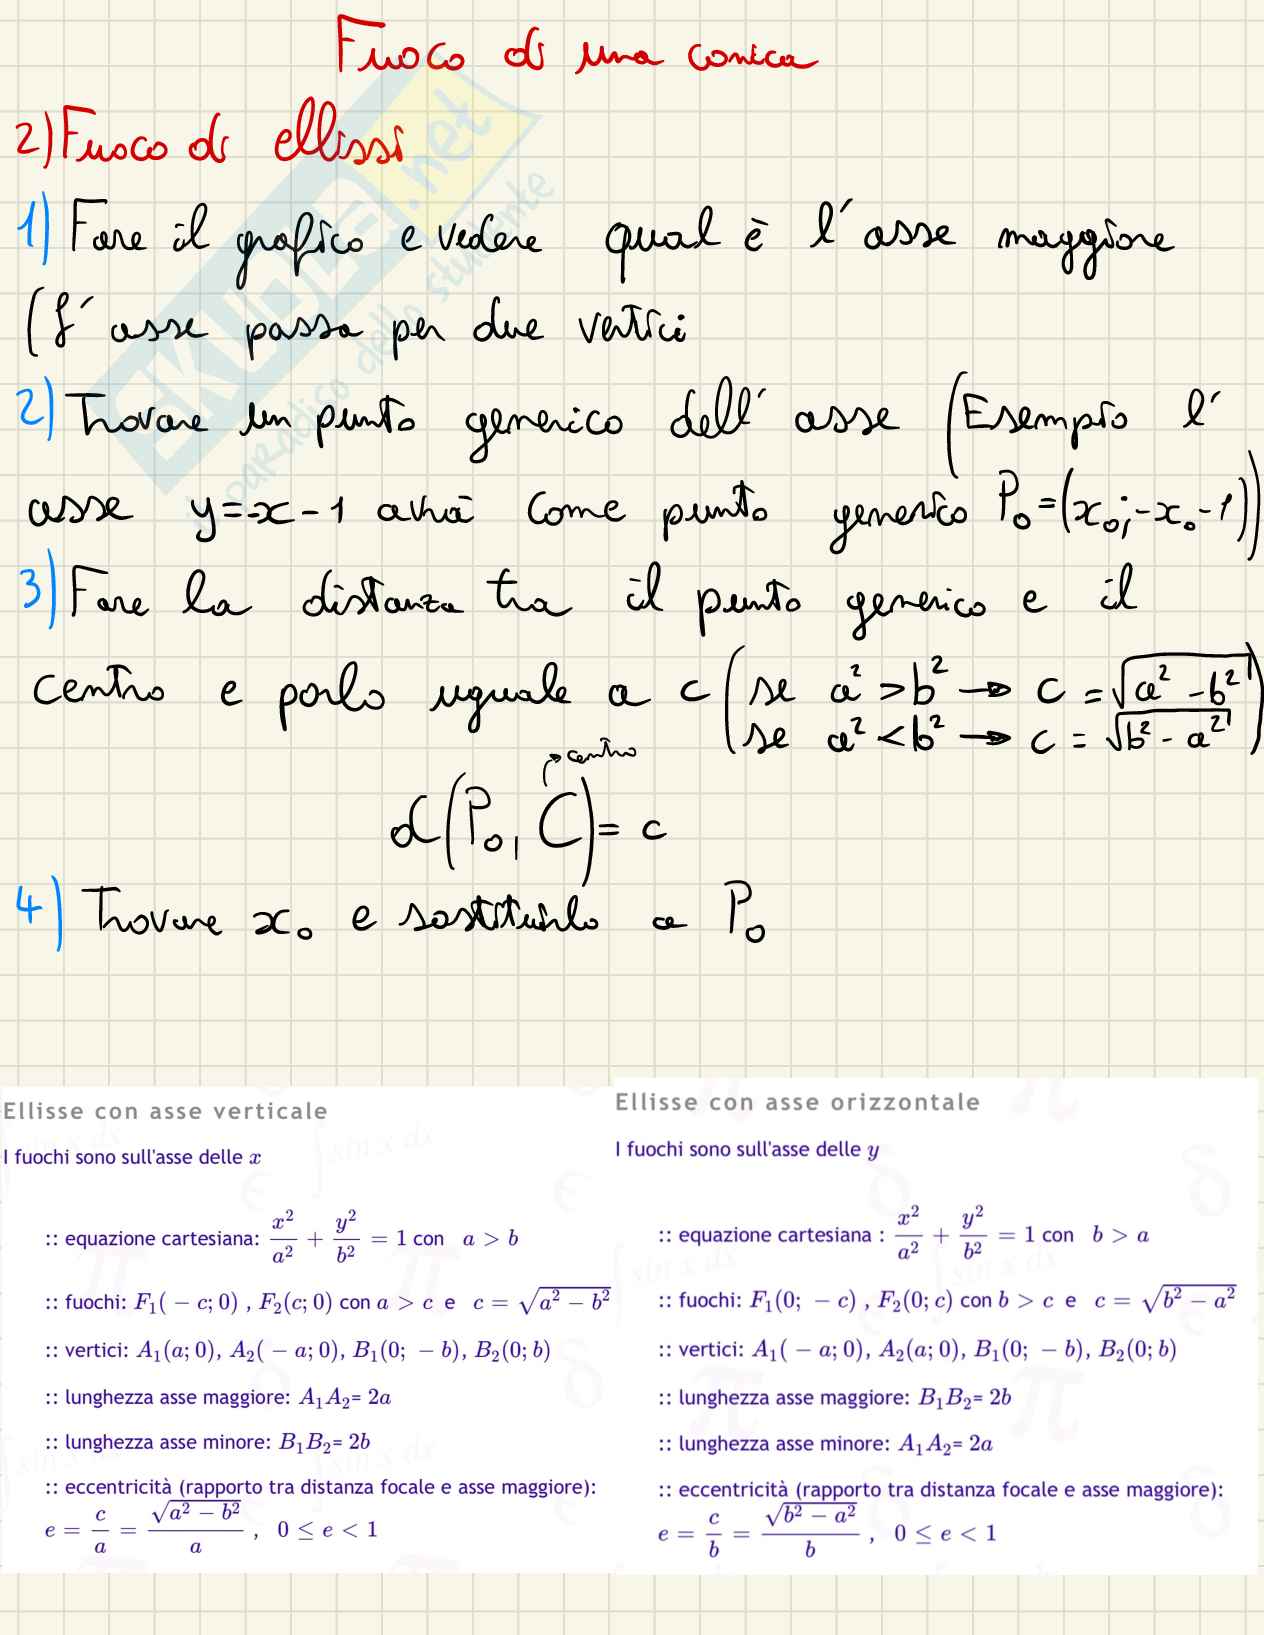 Fuoco di una conica
2) Fuoco di ellissi
1) Fare il grafico e vedere qual è l'asse maggiore
(l'asse passa per due vertici
2) Trovare un punto generico dell'asse (Esempio l'
asse y=-x-1 avrà come punto generico P₀=(x₀;-x₀-1))
3) Fare la distanza tra il punto generico e il
centro e porlo uguale a c (se a²>b² → c=√(a²-b²)
se a²<b² → c=√(b²-a²))
→ centro
d(P₀, C)=c
4) Trovare x₀ e sostituirlo a P₀
SKUOLA.net
paradiso dello studente
Ellisse con asse verticale
I fuochi sono sull'asse delle x
:: equazione cartesiana: x²/a² + y²/b² = 1 con a > b
:: fuochi: F₁( − c; 0) , F₂(c; 0) con a > c e c = √(a² − b²)
:: vertici: A₁(a; 0), A₂( − a; 0), B₁(0; − b), B₂(0; b)
:: lunghezza asse maggiore: A₁A₂= 2a
:: lunghezza asse minore: B₁B₂= 2b
:: eccentricità (rapporto tra distanza focale e asse maggiore):
e = c/a = √(a² − b²)/a , 0 ≤ e < 1
Ellisse con asse orizzontale
I fuochi sono sull'asse delle y
:: equazione cartesiana : x²/a² + y²/b² = 1 con b > a
:: fuochi: F₁(0; − c) , F₂(0; c) con b > c e c = √(b² − a²)
:: vertici: A₁( − a; 0), A₂(a; 0), B₁(0; − b), B₂(0; b)
:: lunghezza asse maggiore: B₁B₂= 2b
:: lunghezza asse minore: A₁A₂= 2a
:: eccentricità (rapporto tra distanza focale e asse maggiore):
e = c/b = √(b² − a²)/b , 0 ≤ e < 1